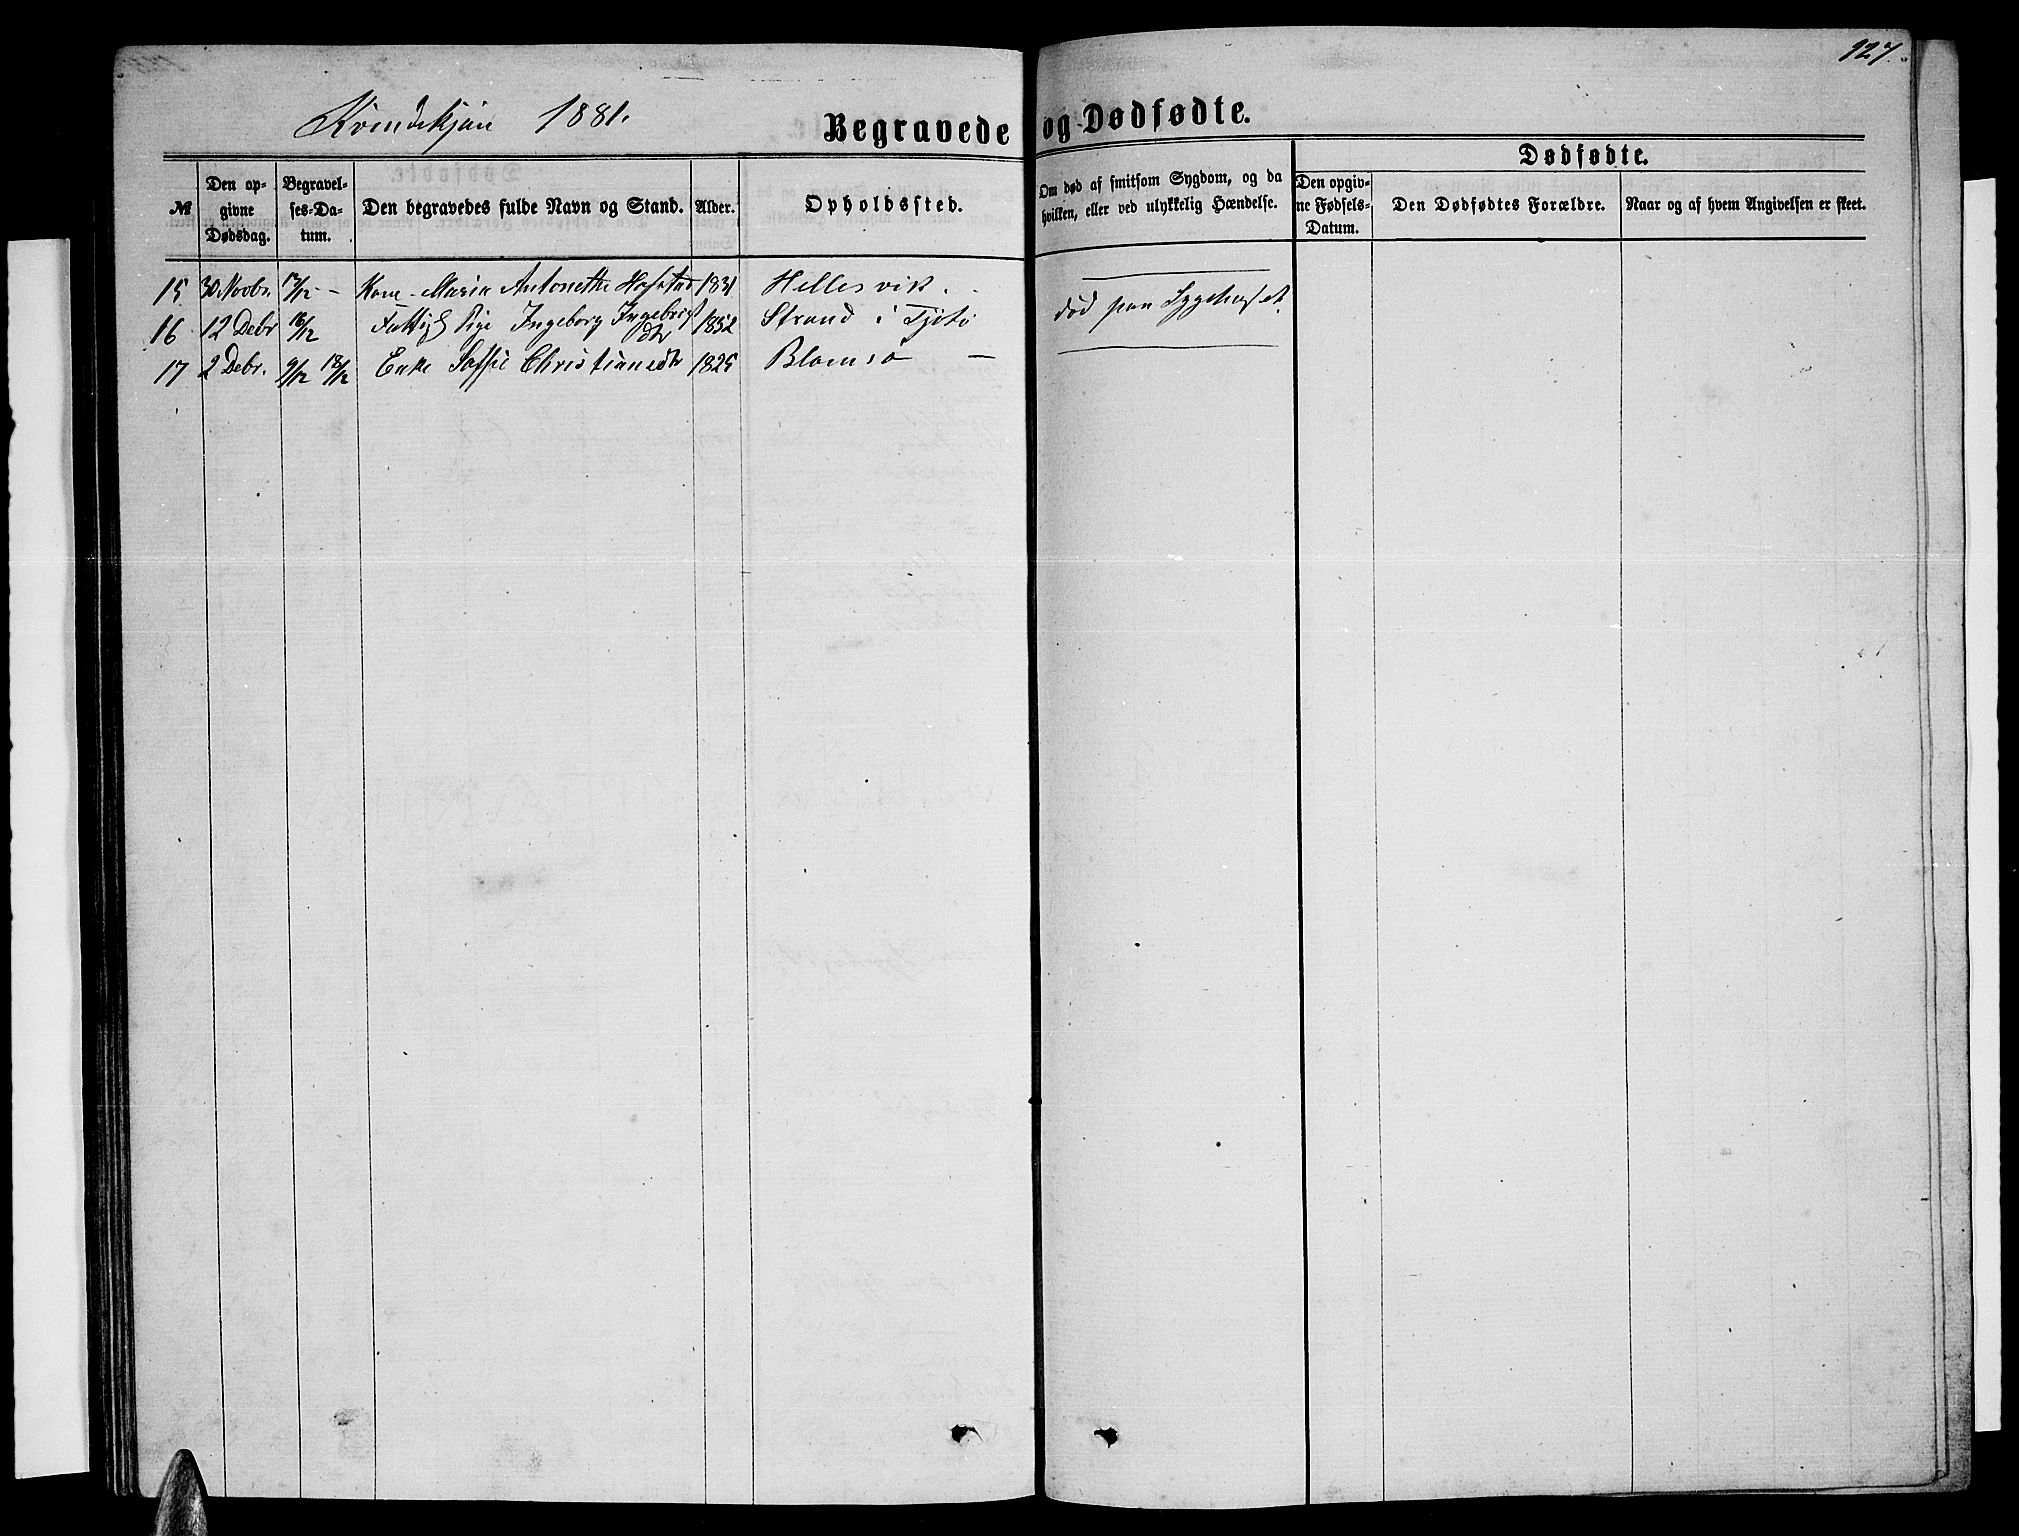 127.
Kvindekjøn 1881.
Begravede og Dødfødte.
Dødfødte.
№
Den opgivne Dødsdag.
Begravelses-Datum.
Den begravedes fulde Navn og Stand.
Alder.
Opholdssted.
Om død af smitsom Sygdom, og da hvilken, eller ved ulykkelig Hændelse.
Den opgivne Fødsels-Datum.
Den Dødfødtes Forældre.
Naar og af hvem Angivelsen er skeet.
15 30 Novbr 17/12 - Kone Maria Antonette Hofstad 1831 Hellesvik
16 12 Debr 16/12 Fattig Pige Ingeborg Ingebrigtdtr 1852 Strand i Tjøtø død paa Sygehuset
17 2 Debr. 9/12 18/12 Enke Soffie Christiansdtr 1825 Blomsø —